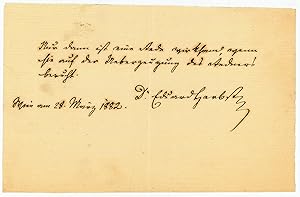 Nur dann ist eine Rede wirksam, wenn
sie auf der Ueberzeugung des Redners
beruht.
Wien am 28. März 1882.
Dr. Eduard Herbst